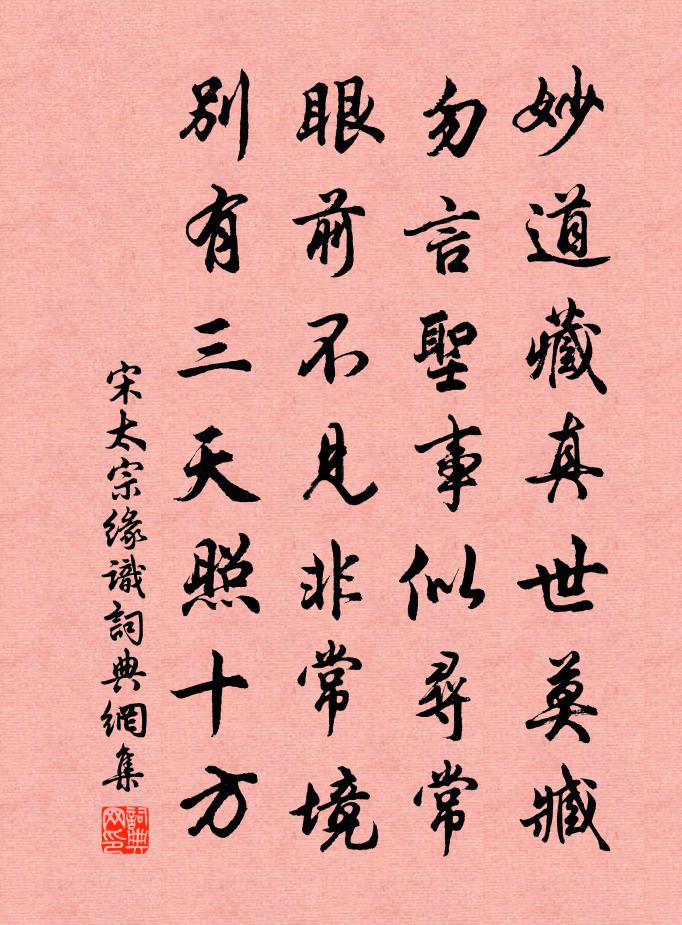 妙道藏真世莫臧
勿言聖事似尋常
眼前不見非常境
別有三天照十方
宋太宗緣識詞典網集
詞典网印